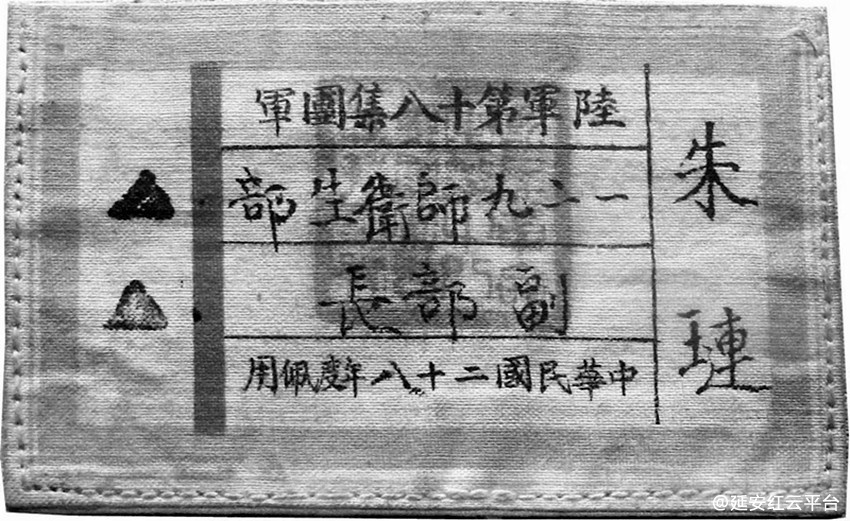 朱璉
陸軍第十八集團軍
一二九師衛生部
副部長
中華民國二十八年度佩用
@延安红云平台